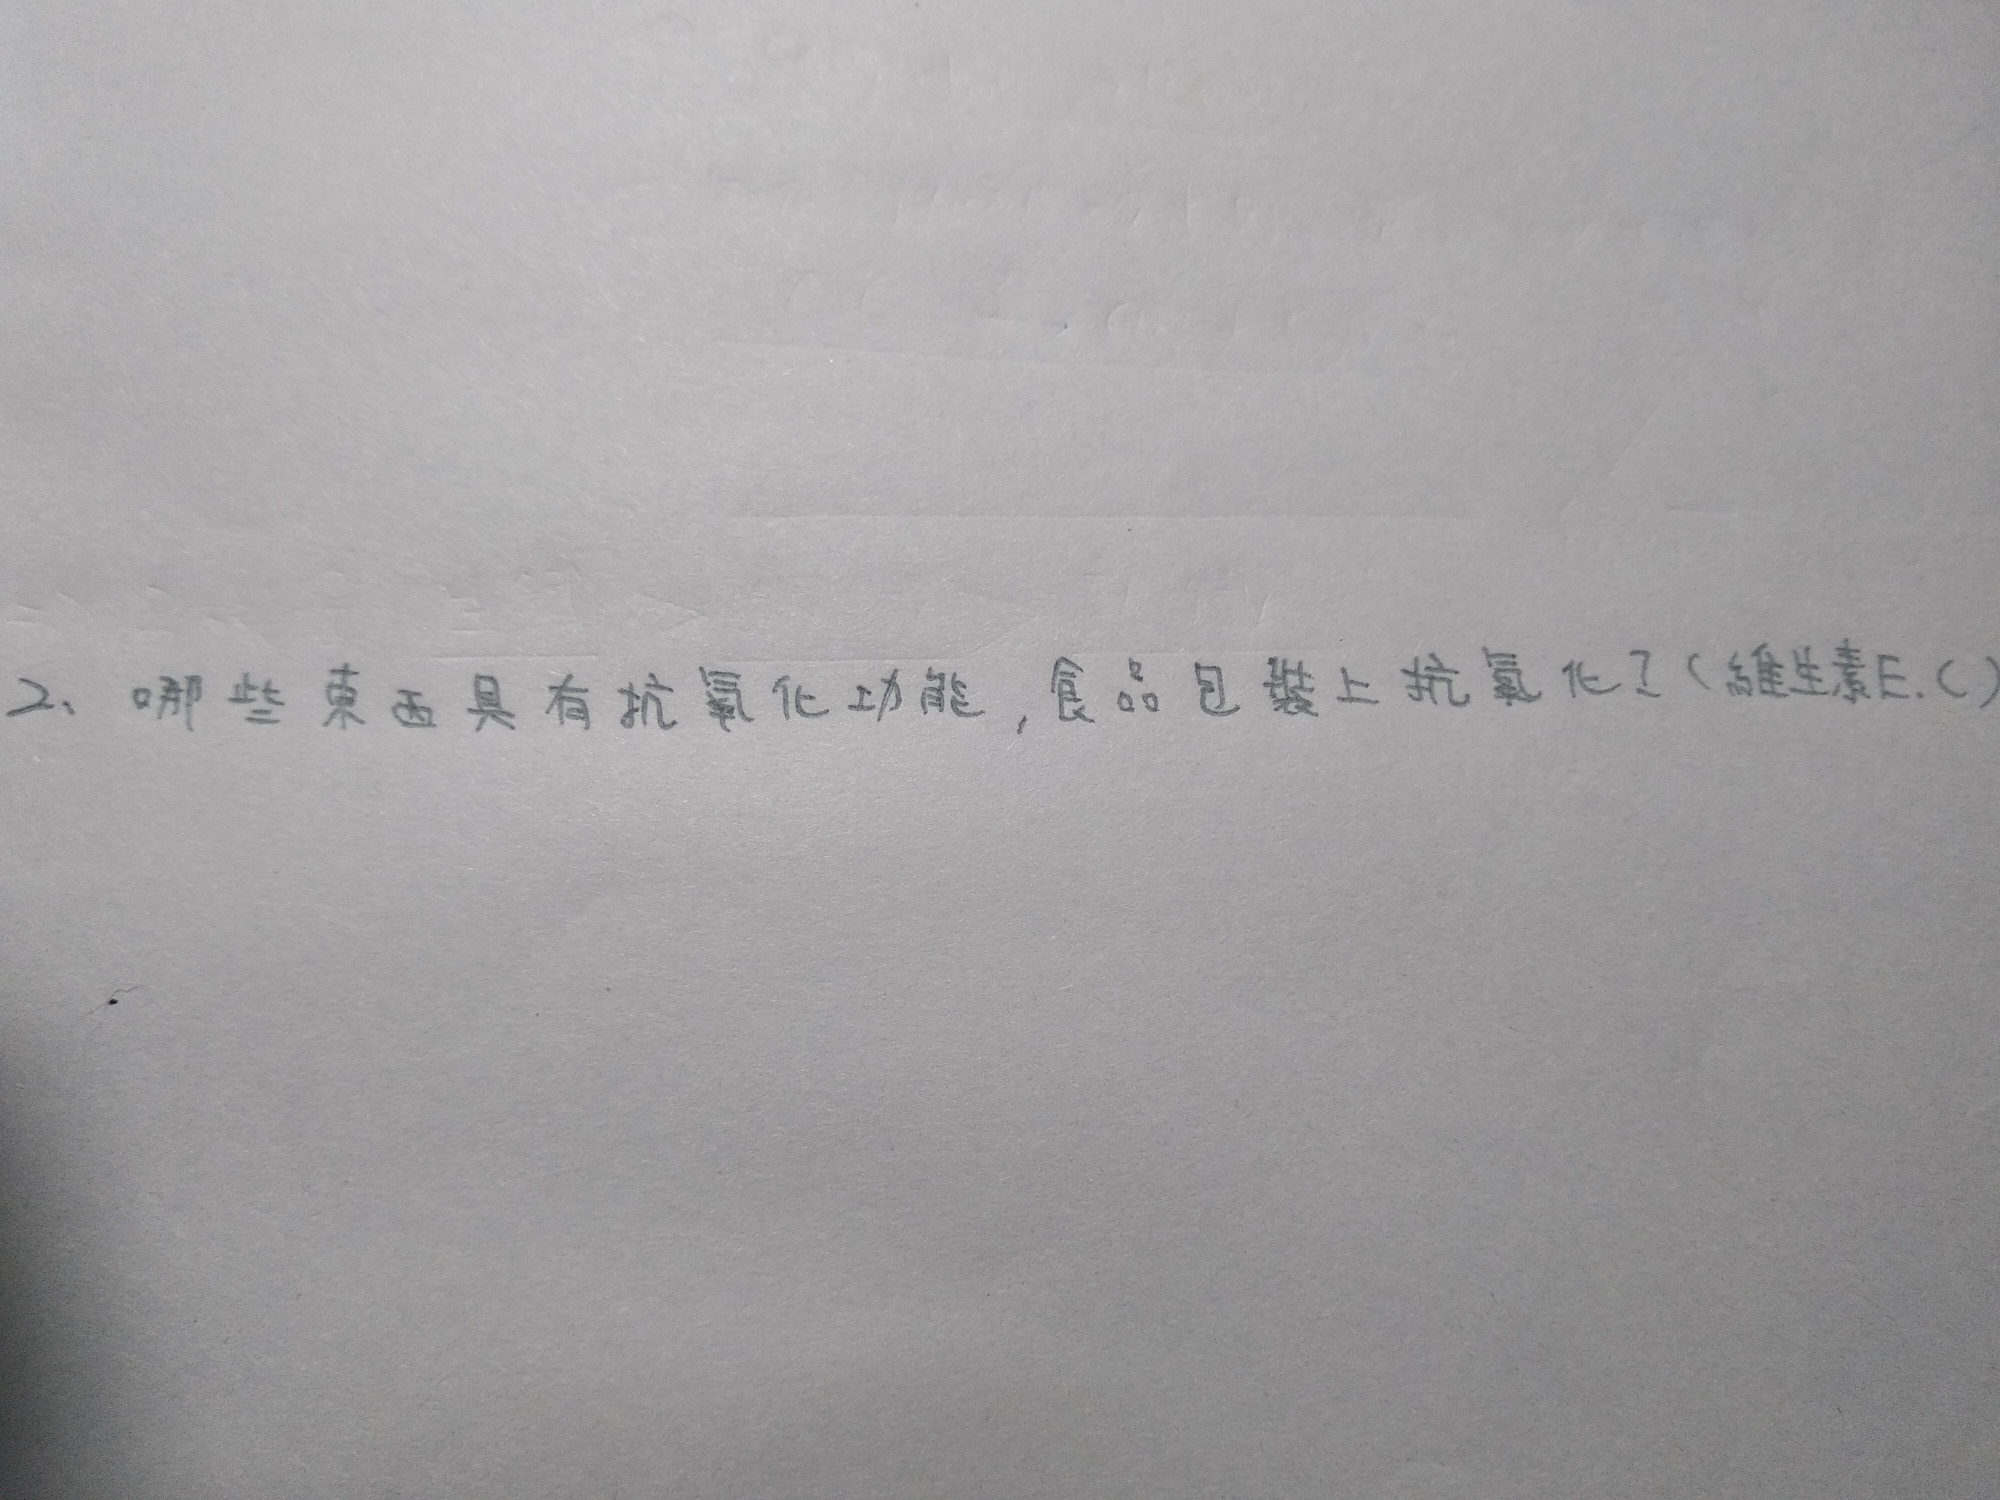 2、哪些東西具有抗氧化功能,食品包裝上抗氧化?(維生素E.C)